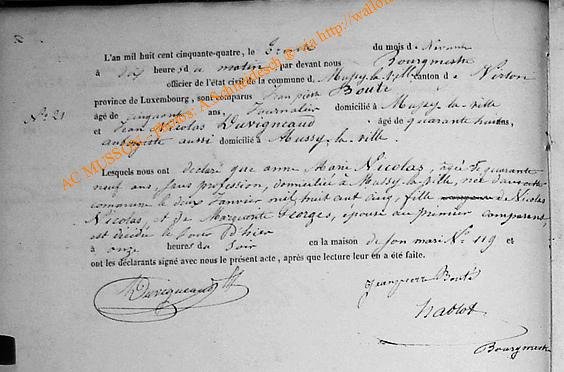 L'an mil huit cent cinquante-quatre, le Trente du mois de
à dix heures du matin par devant nous Bourgmestre
officier de l'état civil de la commune d. Mussy-la-ville canton d. Virton
province de Luxembourg, sont comparus Jean pierre Bouté
Nº 21 âgé de cinquante ans, Journalier domicilié à Mussy la ville
et Jean Nicolas Duvigneaud âgé de quarante huit ans,
aubergiste aussi domicilié à Mussy la ville.
Lesquels nous ont déclaré que anne Marie Nicolas, agée de quarante
neuf ans, sans profession, domiciliée à Mussy-la-ville, née dans cette
commune le deux Janvier mil huit cent cinq, fille de Nicolas
Nicolas, et de Marguerite Georges, epouse du premier comparent,
est décédée le jour d'hier
à onze heures du Soir en la maison de son mari Nº 119 et
ont les déclarants signé avec nous le présent acte, après que lecture leur en a été faite.
Duvigneaud Jeanpierre Bouté
Hablot
Bourgmestre
AC MUSSON - Photos: A.Schlaudesch @ via http://wallo